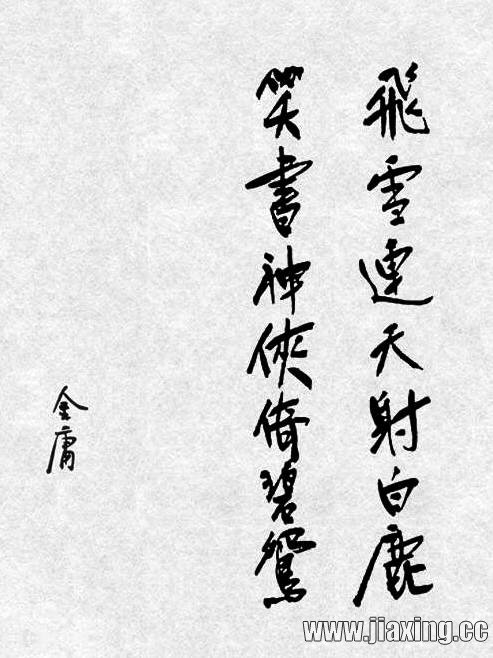 飛雪連天射白鹿
笑書神俠倚碧鴛
金庸
www.jiaxing.cc